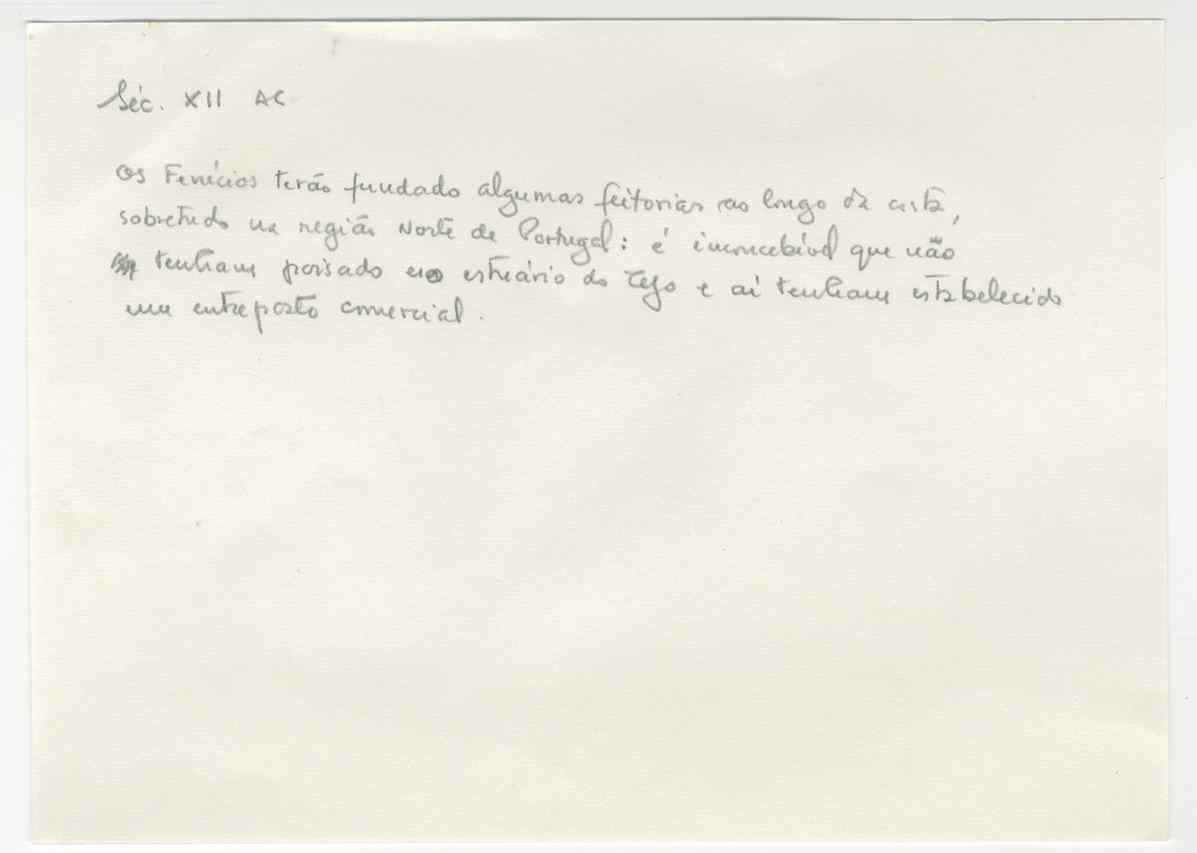 Séc. XII AC
Os Fenícios terão fundado algumas feitorias ao longo da costa,
sobretudo na região Norte de Portugal: é inconcebível que não
tenham poisado no estuário do Tejo e aí tenham estabelecido
um entreposto comercial.